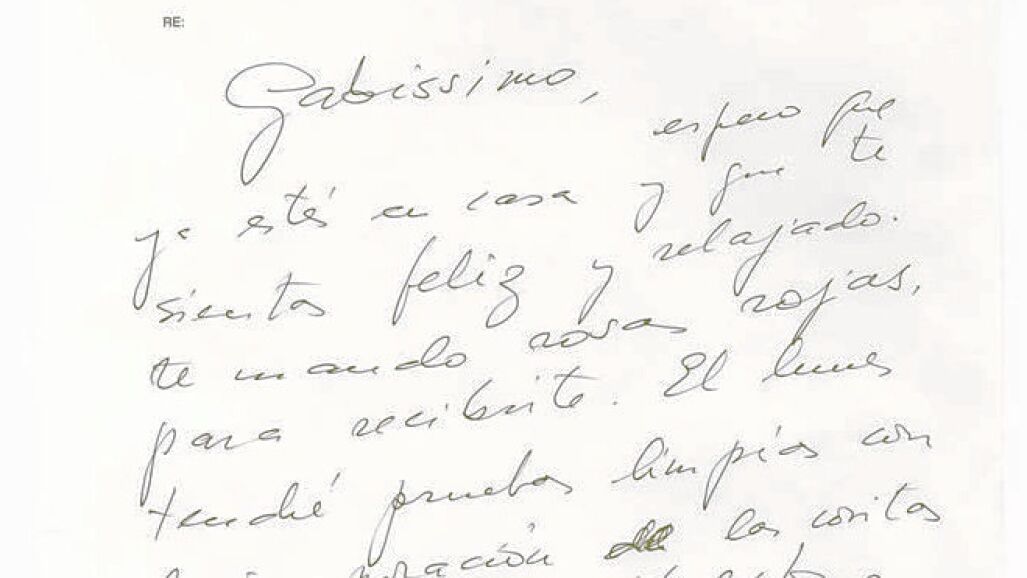 RE:
Gabissimo,
espero que
ya estés en casa y que te
sientas feliz y relajado.
te mando rosas rojas,
para recibirte. El lunes
tendré pruebas limpias con
los cositas